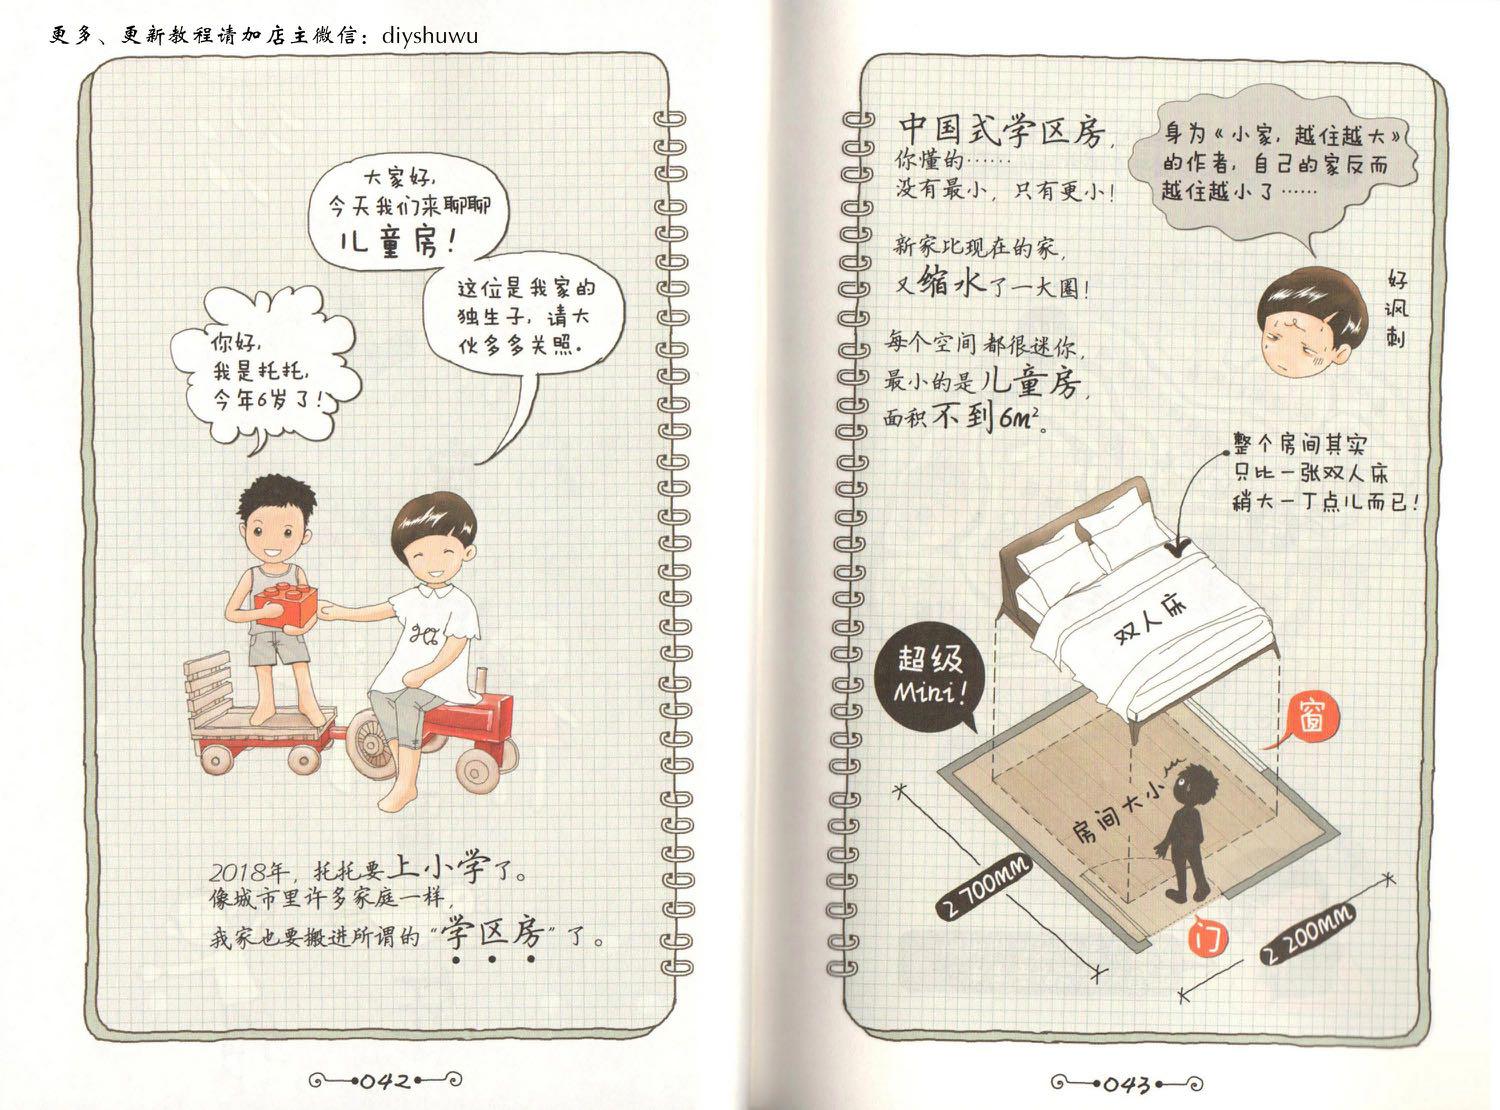 更多、更新教程请加店主微信：diyshuwu
大家好，
今天我们来聊聊
儿童房！
这位是我家的
独生子，请大
伙多多关照．
你好，
我是托托，
今年6岁了！
2018年，托托要上小学了。
像城市里许多家庭一样，
我家也要搬进所谓的“学区房”了。
042
中国式学区房，
你懂的……
没有最小，只有更小！
身为《小家，越住越大》
的作者，自己的家反而
越住越小了……
好讽刺
新家比现在的家，
又缩水了一大圈！
每个空间都很迷你，
最小的是儿童房，
面积不到6m²。
整个房间其实
只比一张双人床
稍大一丁点儿而已！
双人床
超级
Mini！
窗
房间大小
2 700MM
2 200MM
门
043